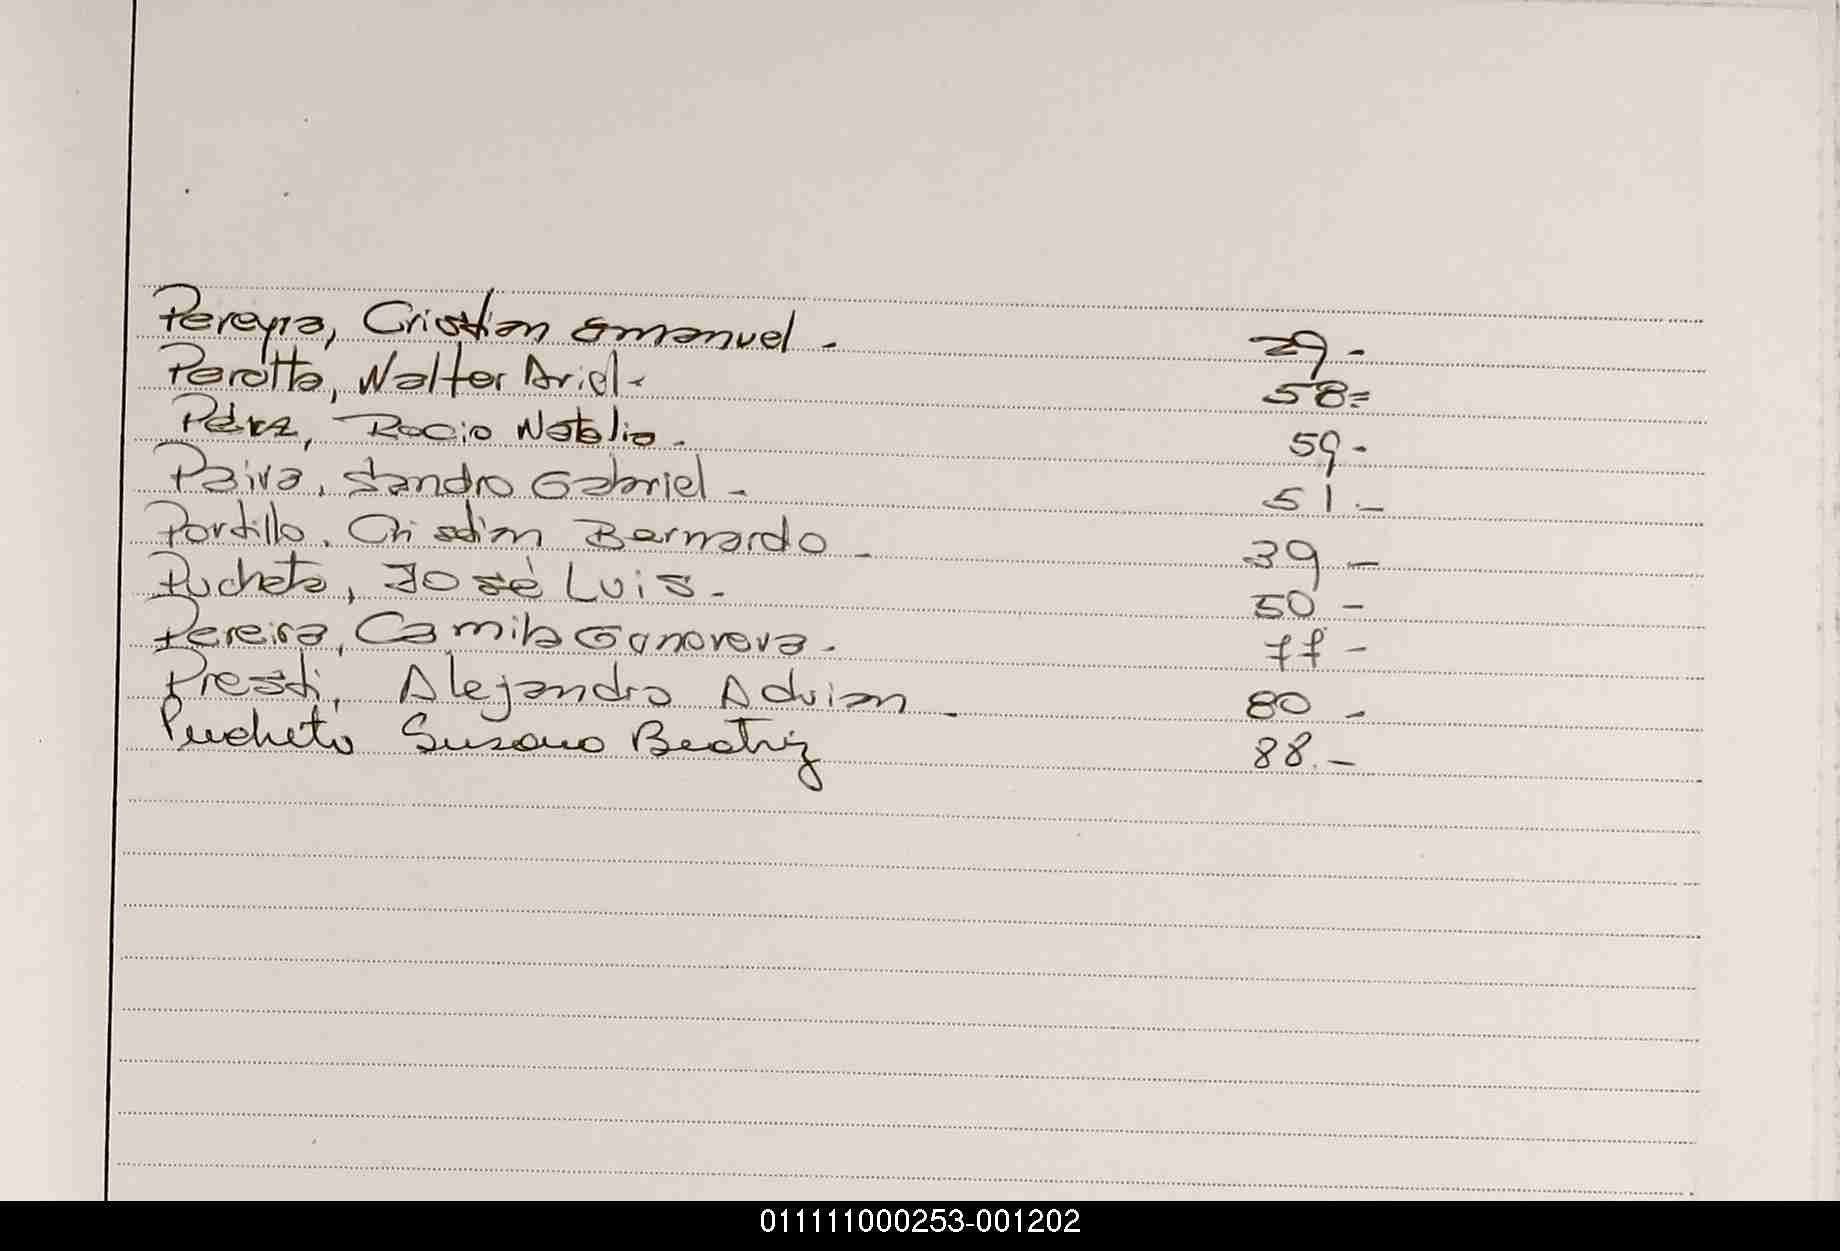 Pereyra, Cristian Emanuel. 29.-
Perotta, Walter Ariel.- 58=
Pérez, Rocio Natalia. 59.-
Paiva, Sandro Gabriel.- 51.-
Portillo, Cristian Bernardo.- 39.-
Pucheta, José Luis.- 50.-
Pereira, Camila Genoveva.- 77-
Presti, Alejandro Adrian.- 80.-
Pucheta Susana Beatriz 88.-
011111000253-001202